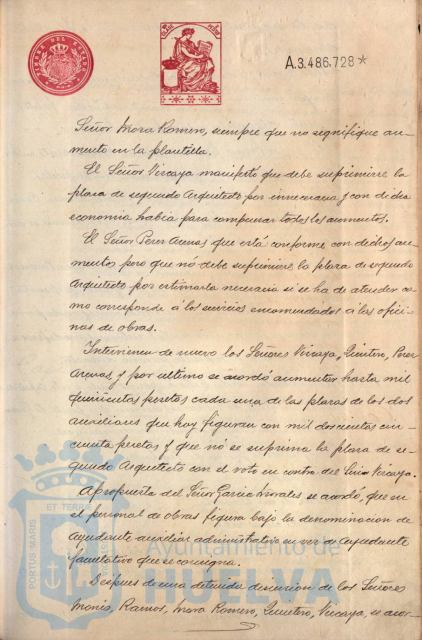 TIMBRE DEL ESTADO
A.3.486.728*
Señor Mora Romero, siempre que no signifique au-
mento en la plantilla.
El Señor Vizcaya manifestó que debe suprimirse la
plaza de segundo Arquitecto por innecesaria y con dicha
economia habia para compensar todos los aumentos.
El Señor Perez Arenas que está conforme con dichos au-
mentos pero que nó debe suprimirse la plaza de segundo
Arquitecto por estimarla necesaria si se ha de atender co-
mo corresponde á los servicios encomendados á las ofici-
nas de obras.
Intervienen de nuevo los Señores Vizcaya, Quintero, Perez
Arenas, y por ultimo se acordó aumentar hasta mil
quinientas pesetas cada una de las plazas de los dos
auxiliares que hoy figuran con mil doscientas cin-
cuenta pesetas y que nó se suprima la plaza de se-
gundo Arquitecto con el voto en contra del Señor Vizcaya.
A propuesta del Señor Garcia Morales se acordó, que en
el personal de obras figura bajo la denominacion de
ayudante auxiliar administrativo en vez de Ayudante
facultativo que se consigna.
Despues de una detenida discusion de los Señores
Monis, Ramos, Mora Romero, Quintero, Vizcaya, se acor-
PORTUS MARIS
ET TERRE
Ayuntamiento de
HUELVA